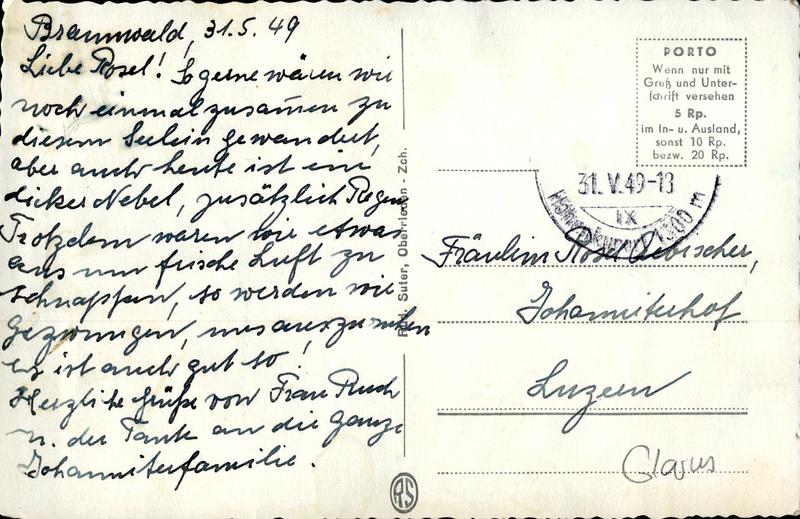 Braunwald, 31.5.49
Liebe Rosel! So gerne wären wir
noch einmal zusamen zu
diesem Seelein gewandert,
aber auch heute ist ein
dicker Nebel, zusätzlich Regen
Trotzdem waren wir etwas
aus um frische Luft zu
schnappen, so werden wir
gezwungen, uns auszuruhen
es ist auch gut so!
Herzliche Grüße von Frau Ruch
u. der Tante an die ganze
Johanniterfamilie.
Rud. Suter, Oberrieden - Zch.
RS
PORTO
Wenn nur mit
Gruß und Unter-
schrift versehen
5 Rp.
im In- u. Ausland,
sonst 10 Rp.
bezw. 20 Rp.
31.V.49-18
IX
1300 m
Fräulein Rosel
Johanniterhof
Luzern
Glarus